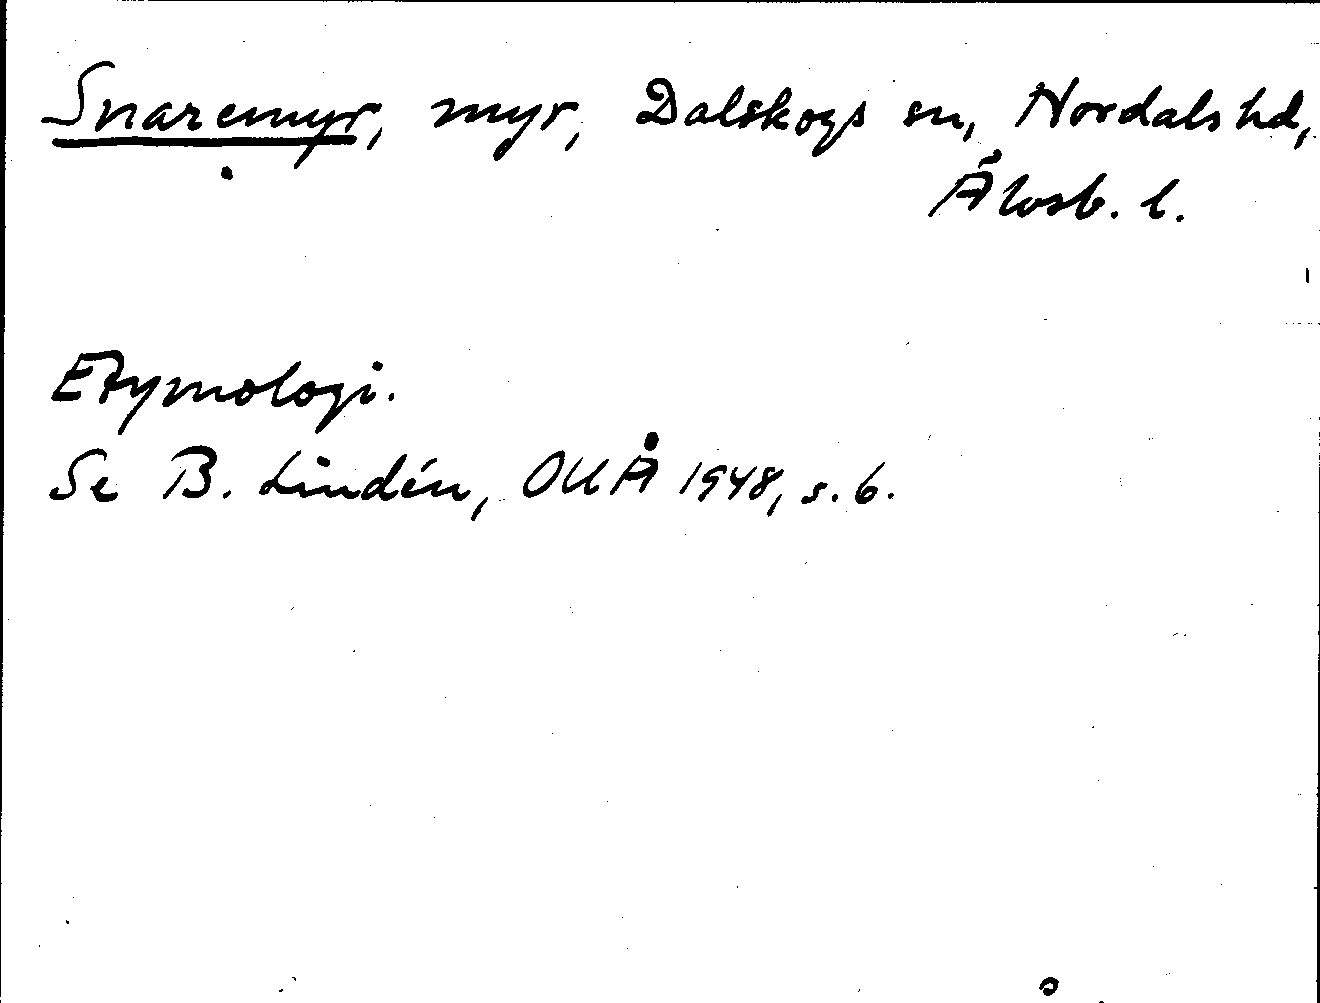 Snaremyr, myr, Dalskogs sn, Nordals hd,
Älvsb. l.
Etymologi.
Se B. Lindén, OUÅ 1948, s. 6.